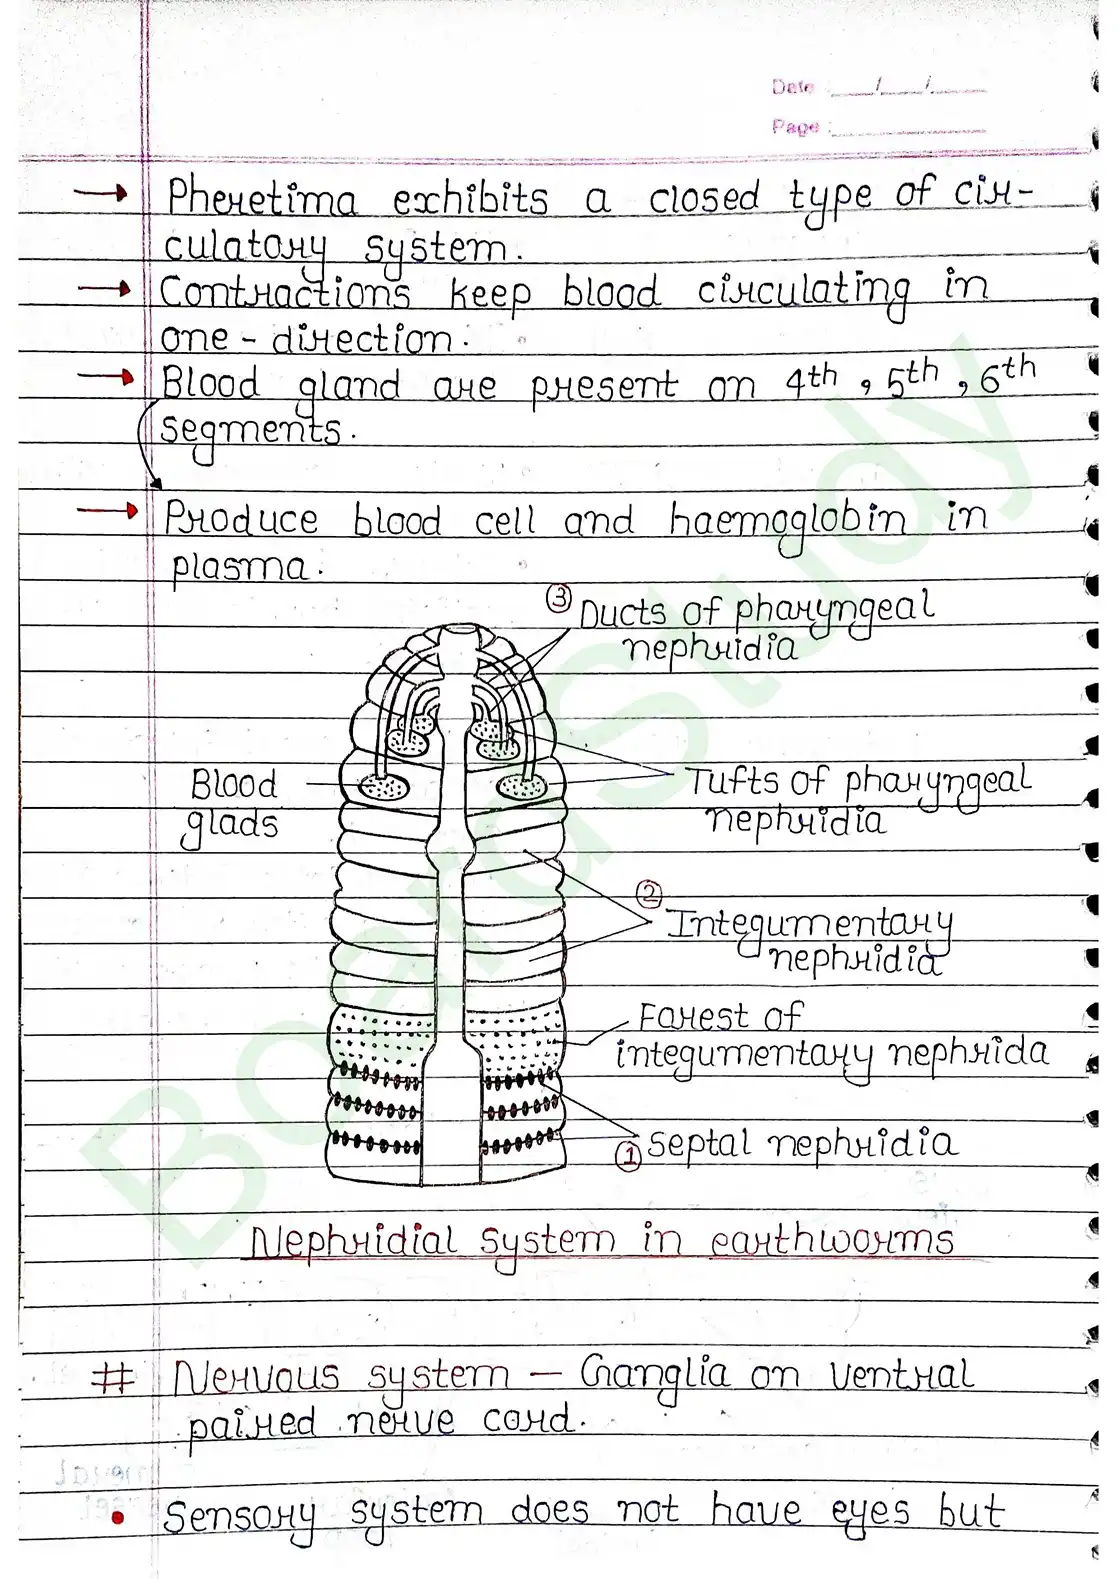 Date : ___/___/___
Page :
→ Pheretima exhibits a closed type of cir-
culatory system.
→ Contractions keep blood circulating in
one - direction.
→ Blood gland are present on 4th, 5th, 6th
segments.
→ Produce blood cell and haemoglobin in
plasma.
③ Ducts of pharyngeal
nephridia
Blood
glads
Tufts of pharyngeal
nephridia
②
Integumentary
nephridia
Forest of
integumentary nephrida
① Septal nephridia
Nephridial system in earthworms
# Nervous system — Ganglia on ventral
paired nerve cord.
• Sensory system does not have eyes but
BoardStudy